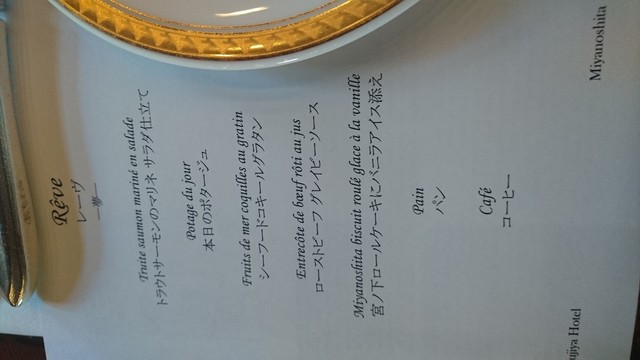 Rêve
レーヴ
―夢―
Truite saumon mariné en salade
トラウトサーモンのマリネ サラダ仕立て
Potage du jour
本日のポタージュ
Fruits de mer coquilles au gratin
シーフードコキールグラタン
Entrecôte de bœuf rôti au jus
ローストビーフ グレイビーソース
Miyanoshita biscuit roulé glace à la vanille
宮ノ下ロールケーキにバニラアイス添え
Pain
パン
Café
コーヒー
ujiya Hotel
Miyanoshita